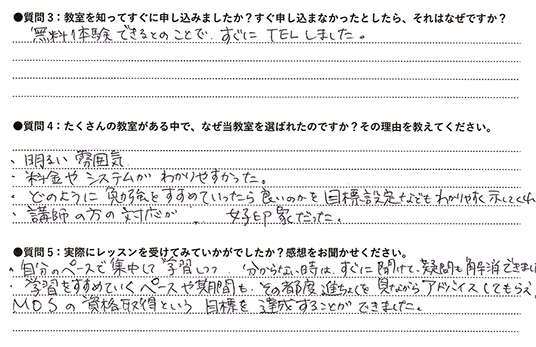 ●質問3：教室を知ってすぐに申し込みましたか？すぐ申し込まなかったとしたら、それはなぜですか？
無料体験できるとのことで、すぐに TELしました。
●質問4：たくさんの教室がある中で、なぜ当教室を選ばれたのですか？その理由を教えてください。
・明るい雰囲気
・料金や システムが わかりやすかった。
どのように 勉強を すすめていったら良いのかを 目標設定なども わかりやすく 示してくれ
・講師の方の対応が 、好印象だった。
●質問5：実際にレッスンを受けてみていかがでしたか？感想をお聞かせください。
・自分のペースで集中して 学習しつつ 分からない時は、すぐに聞けて、疑問も 解消できまし
・学習をすすめていくペースや期間も、その都度 進ちょくを 見ながら アドバイスしてもらえ
MOSの 資格取得という 目標を 達成することが できました。